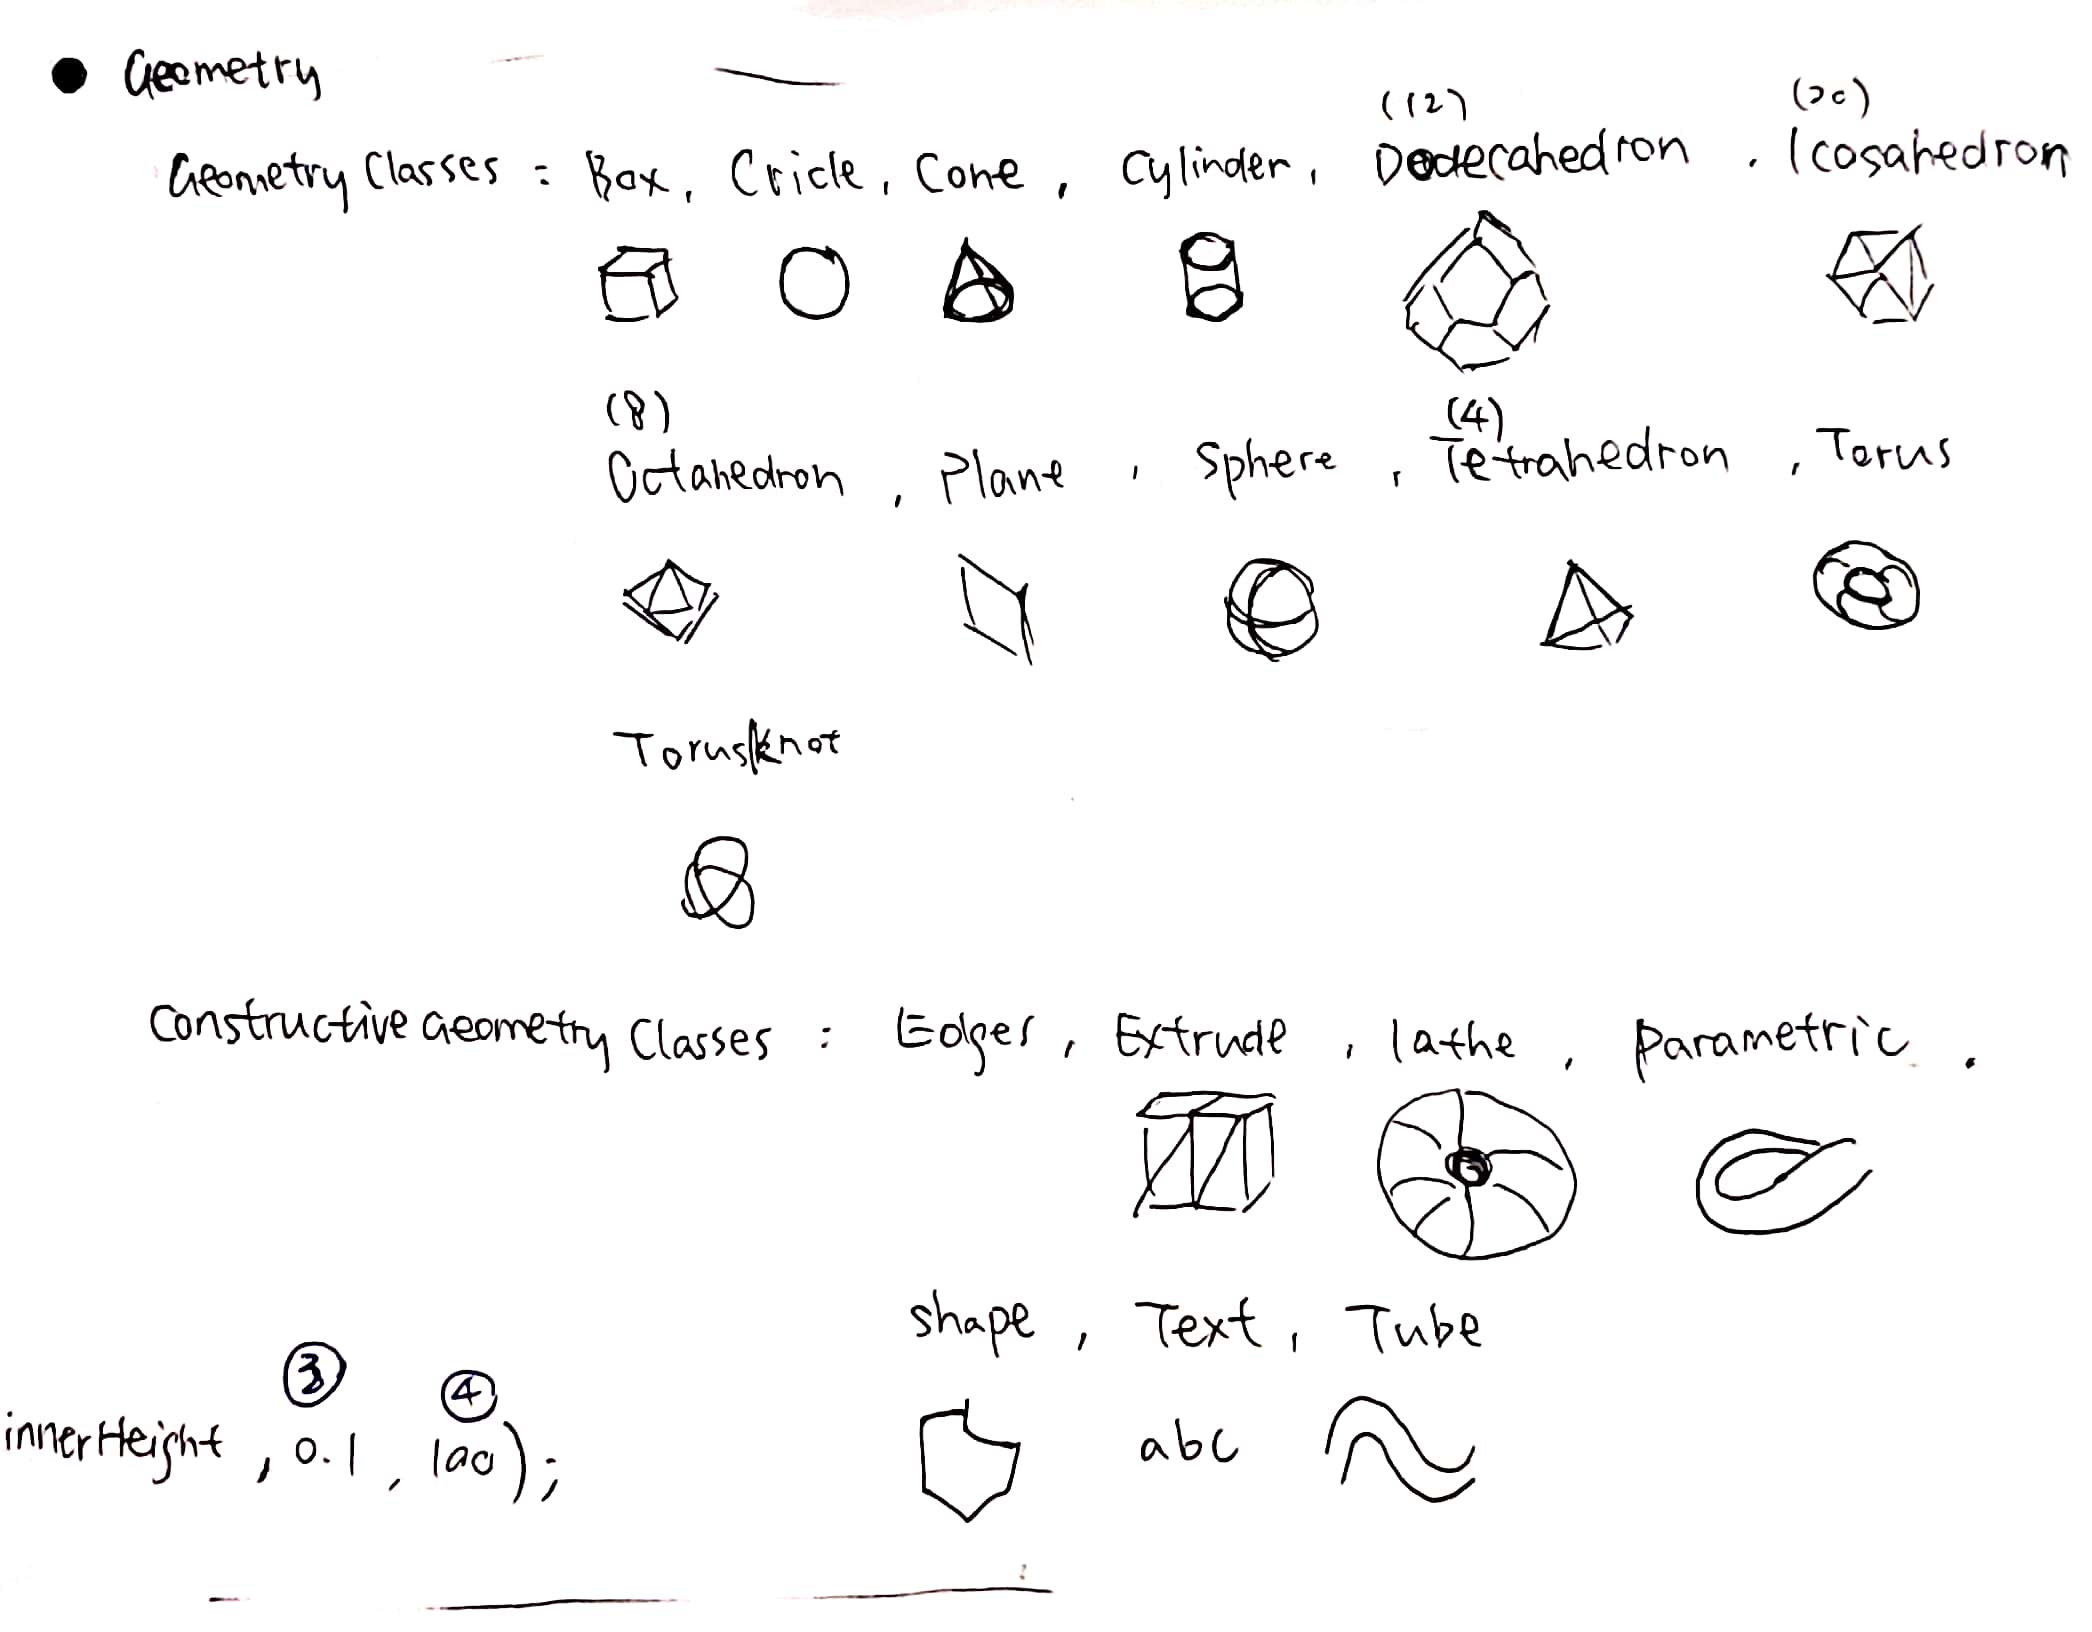 ● Geometry
(12) (20)
Geometry Classes : Box, Cricle, Cone, Cylinder, Dodecahedron, Icosahedron
(8) (4)
Octahedron, Plane, Sphere, Tetrahedron, Torus
TorusKnot
Constructive Geometry Classes : Edges, Extrude, lathe, Parametric.
shape, Text, Tube
③ ④
innerHeight, 0.1, 100);
abc